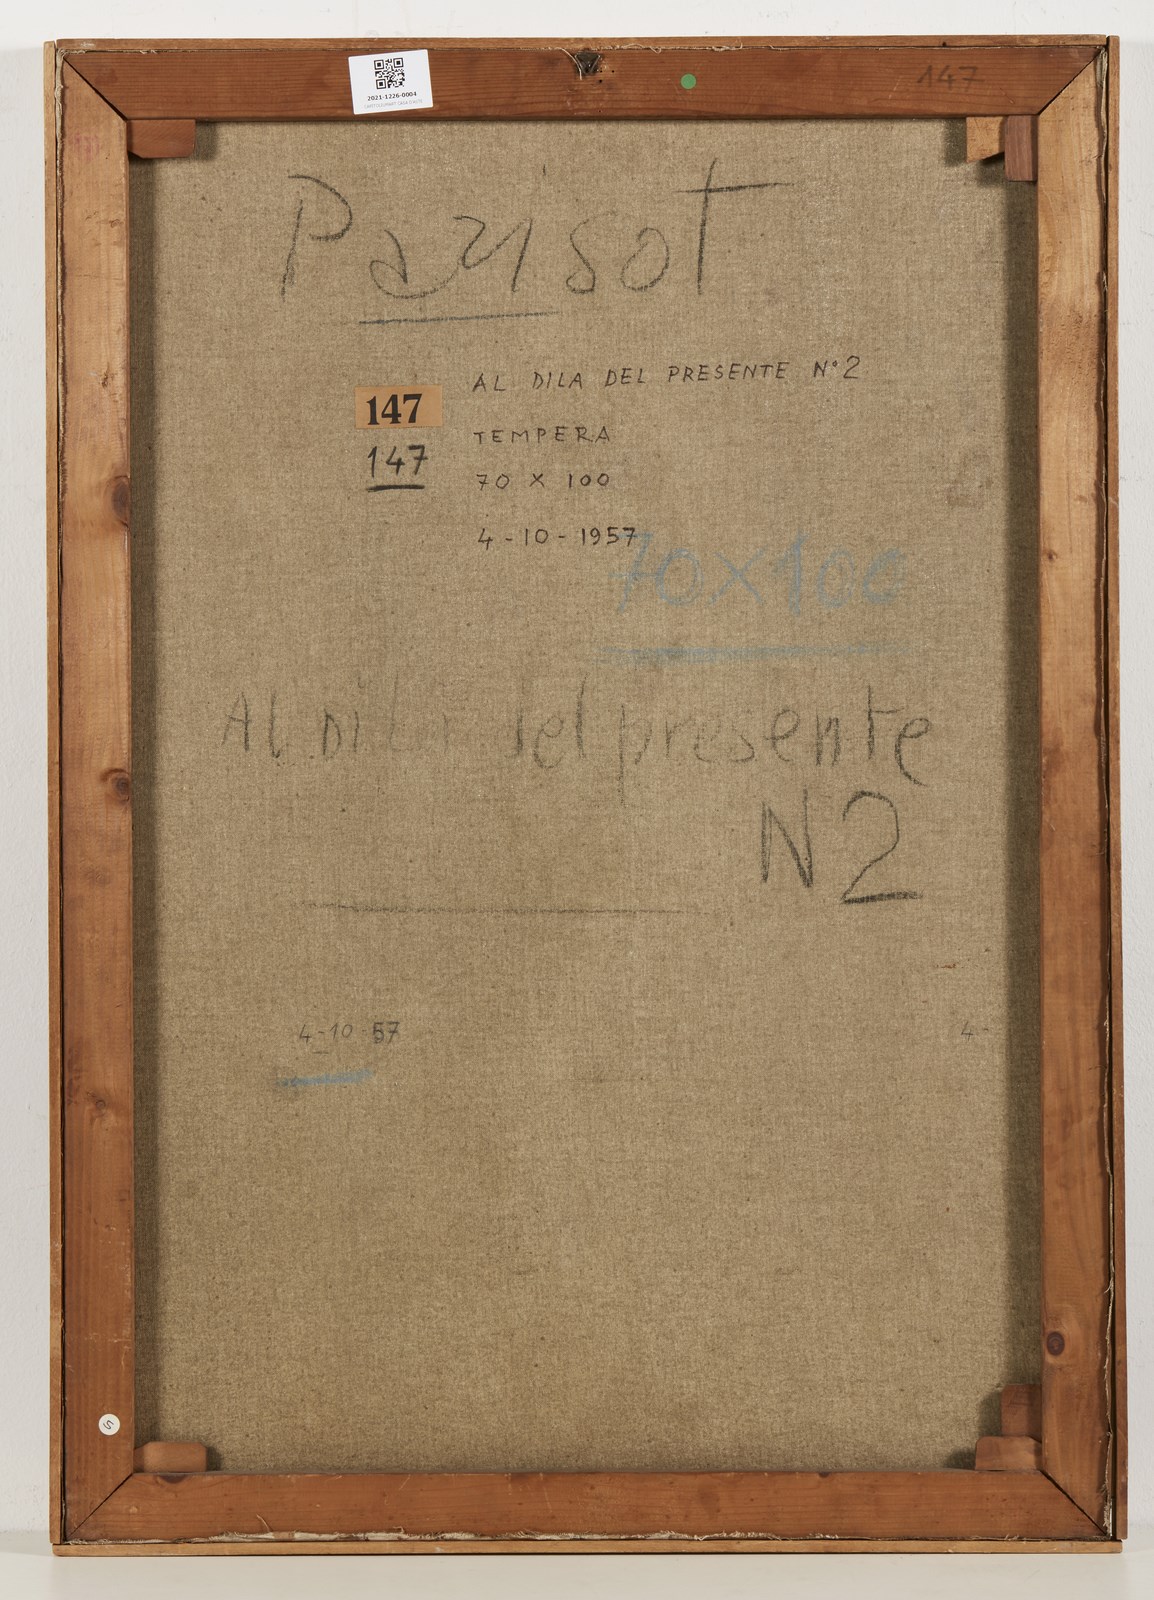 2021-1226-0004
147
Parisot
147
AL DILA DEL PRESENTE N°2
147
TEMPERA
70 X 100
4-10-1957
70x100
Al Di Là del presente
N 2
4-10 57
4-
S